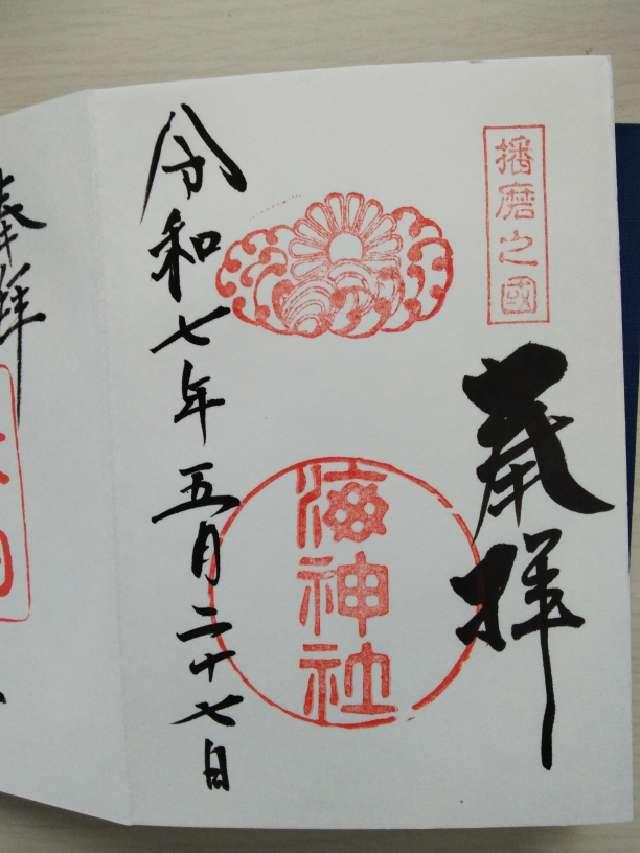 播磨之國
奉拜
海神社
令和七年五月二十七日
奉拝